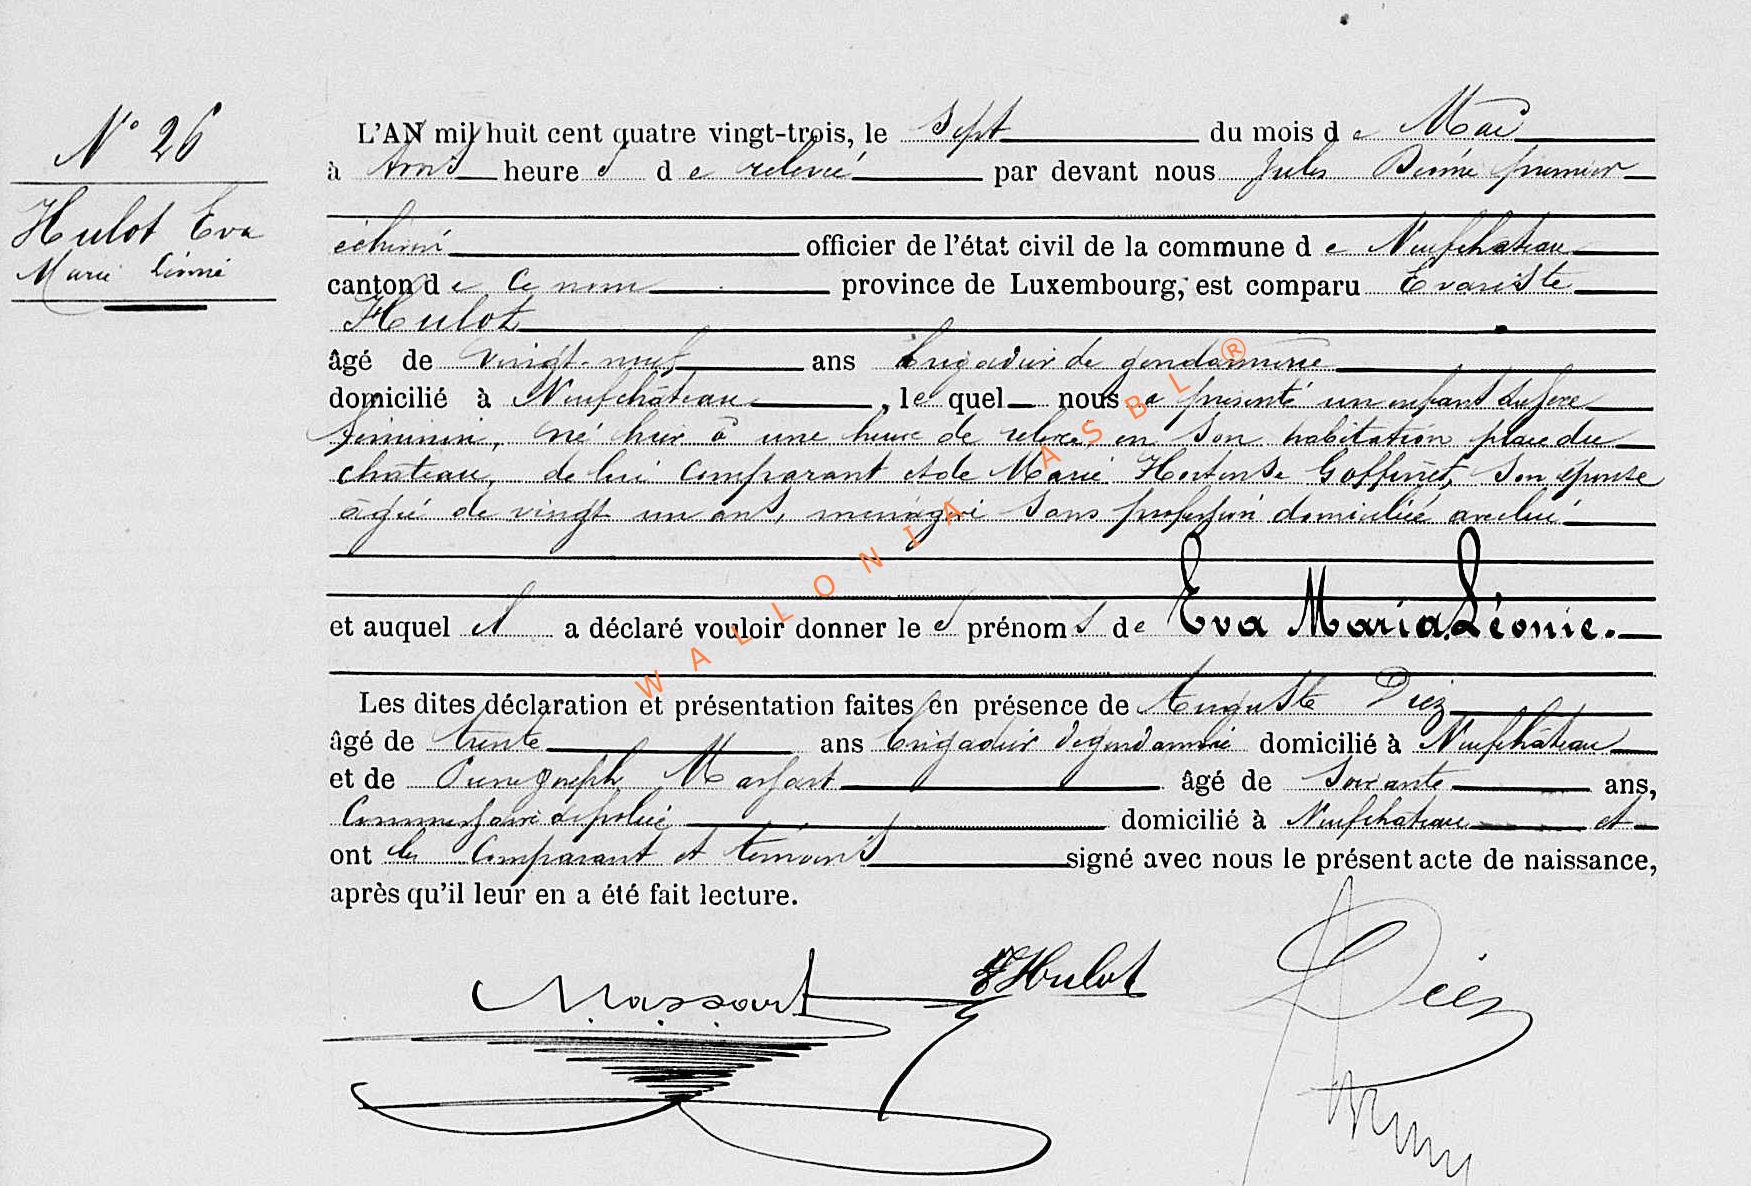 N° 26
Hulot Eva
Marie Léonie
L'AN mil huit cent quatre vingt-trois, le sept du mois de Mai
à trois heures de relevée par devant nous Jules premier
échevin officier de l'état civil de la commune de Neufchateau
canton de ce nom province de Luxembourg, est comparu Evariste
Hulot
âgé de vingt-neuf ans brigadier de gendarmerie
domicilié à Neufchâteau, lequel nous a présenté un enfant du sexe
féminin, né hier à une heure de relevée, en son habitation place du
chateau, de lui comparant et de Marie Hortense Goffinet, son épouse
âgée de vingt un ans, ménagère sans profession domiciliée avec lui
et auquel il a déclaré vouloir donner les prénoms de Eva Maria Léonie.
Les dites déclaration et présentation faites en présence de Auguste Diez
âgé de trente ans brigadier de gendarmerie domicilié à Neufchâteau
et de Pierre Joseph Massart âgé de soixante ans,
Commissaire de police domicilié à Neufchateau et
ont les Comparant et témoins signé avec nous le présent acte de naissance,
après qu'il leur en a été fait lecture.
Massart
E Hulot
Diez
WALLONIA ASBL ®